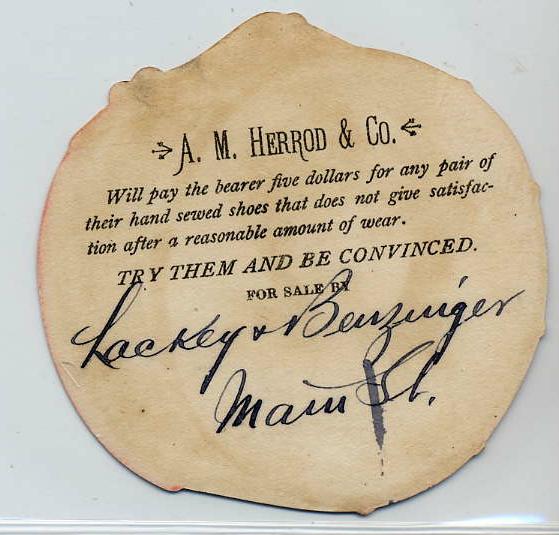 A. M. HERROD & CO.
Will pay the bearer five dollars for any pair of
their hand sewed shoes that does not give satisfac-
tion after a reasonable amount of wear.
TRY THEM AND BE CONVINCED.
FOR SALE BY
Lackey & Benzinger
Main St.